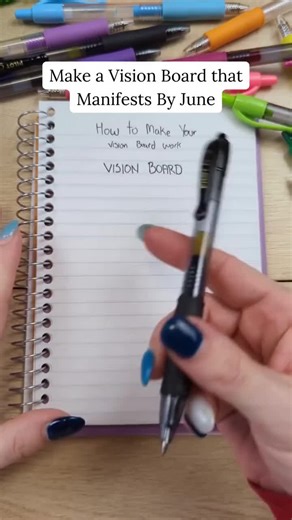 Make a Vision Board that
Manifests By June
How to Make Your
Vision Board work
VISION BOARD
PILOT